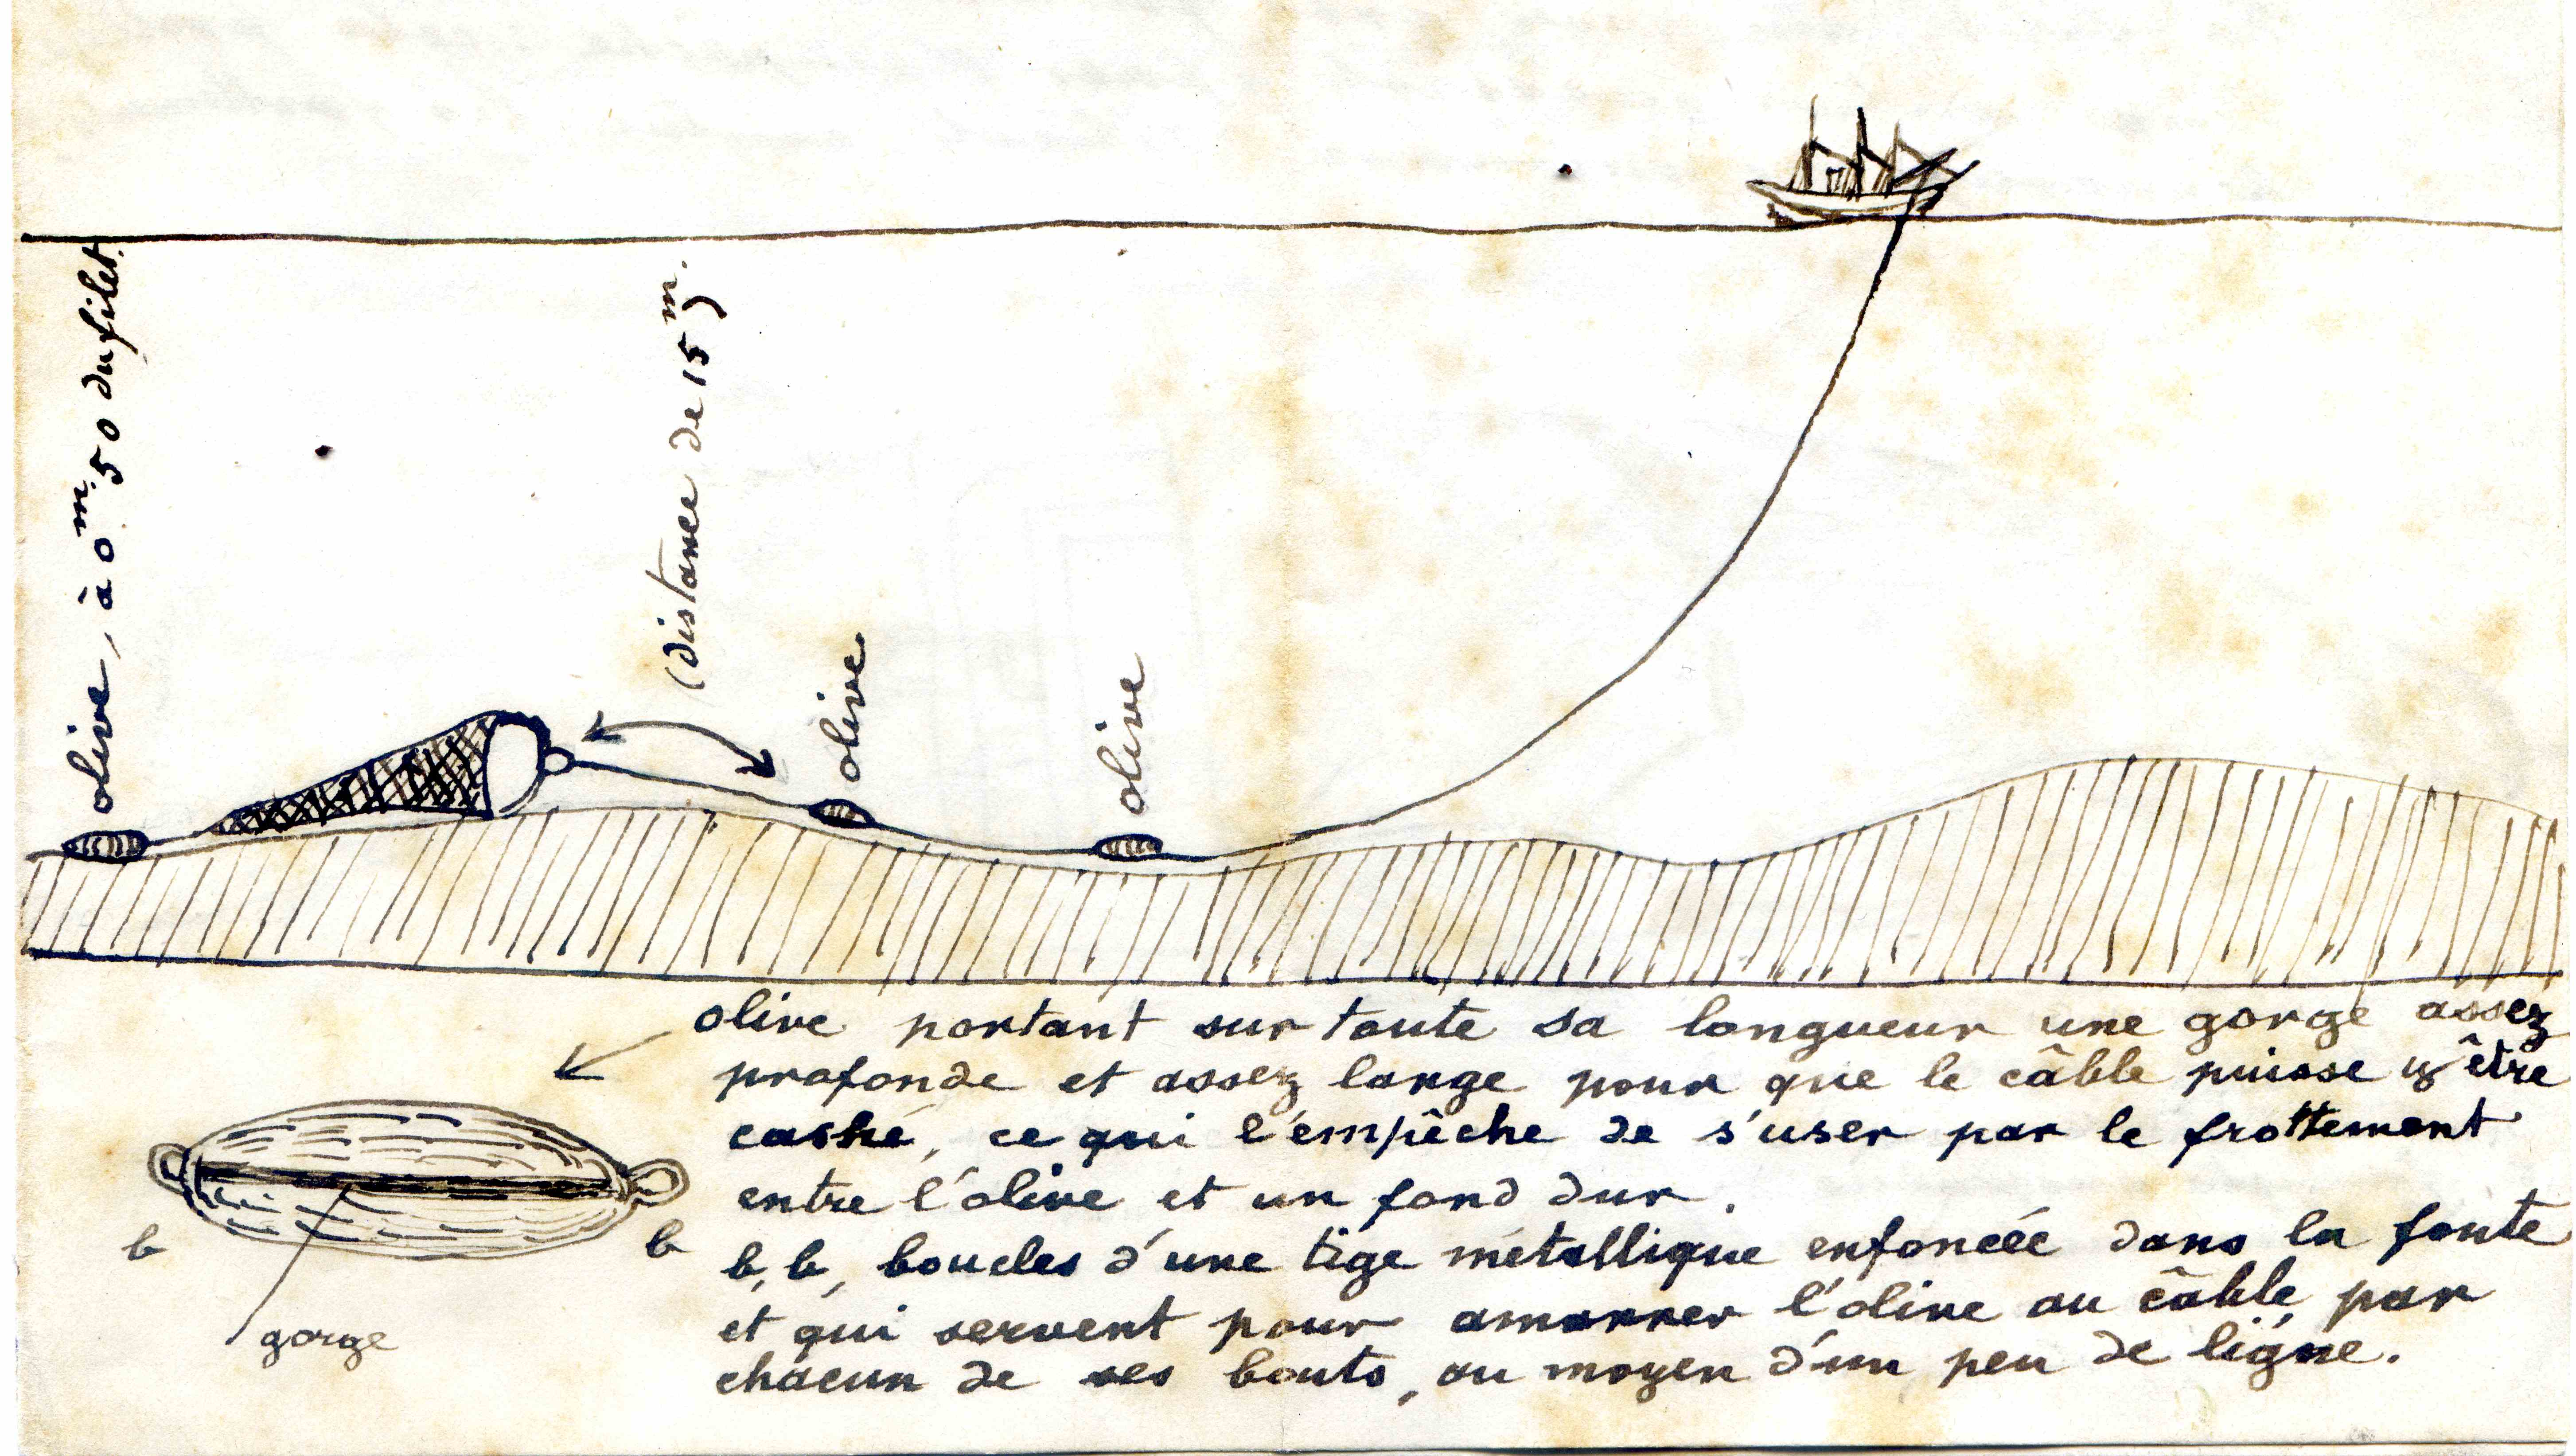 olive, à 0m.50 du filet.
(distance de 15m.)
olive
olive
olive portant sur toute sa longueur une gorge assez
profonde et assez large pour que le câble puisse y être
caché, ce qui l'empêche de s'user par le frottement
entre l'olive et un fond dur.
b, b, boucles d'une tige métallique enfoncée dans la fonte
et qui servent pour amarrer l'olive au câble, par
chacun de ses bouts, au moyen d'un peu de ligne.
b
b
gorge